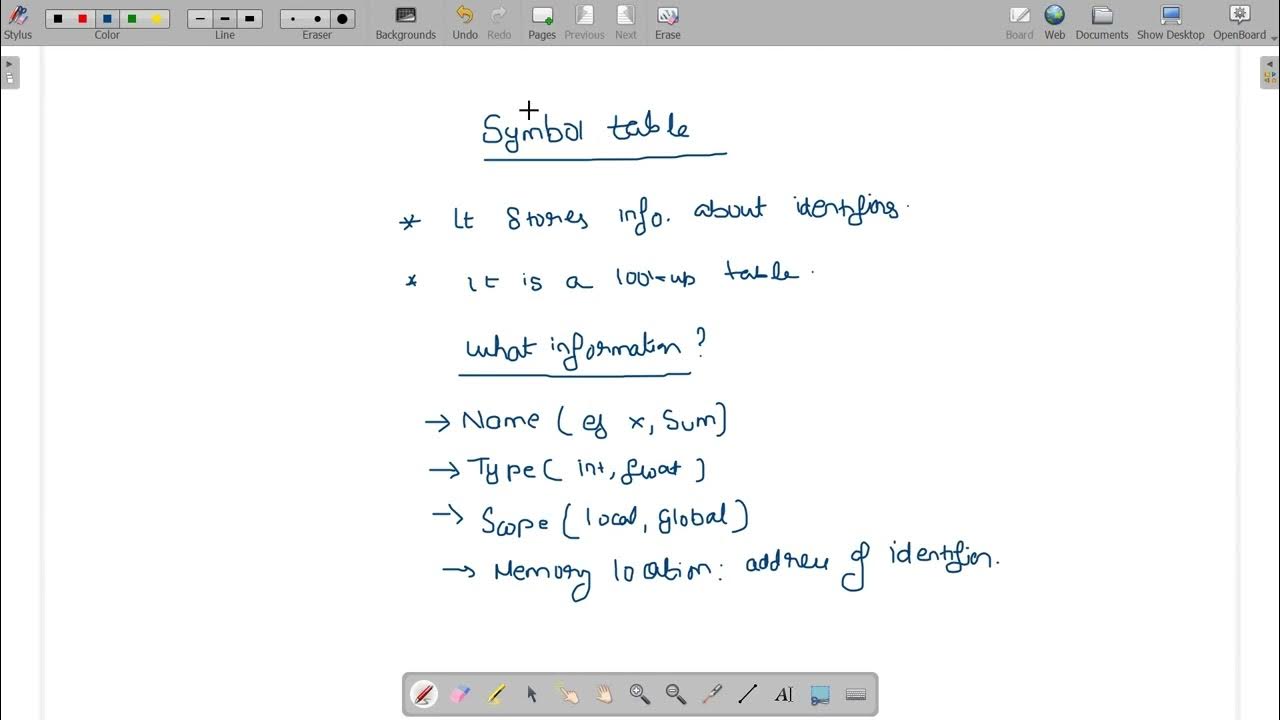 Stylus Color Line Eraser Backgrounds Undo Redo Pages Previous Next Erase Board Web Documents Show Desktop OpenBoard
Symbol table
* It stores info. about identifiers.
* it is a look-up table.
what information?
→ Name (eg x, sum)
→ Type ( int, float )
→ Scope (local, global)
→ Memory location: address of identifier.
AI